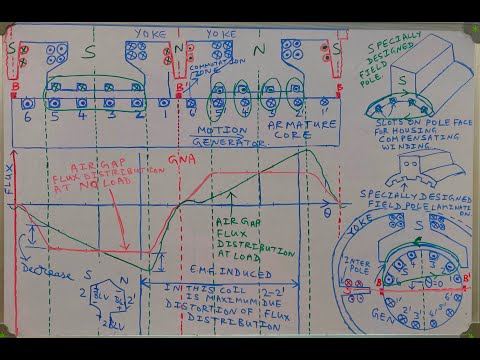 YOKE
YOKE
S
S
N
N
S
COMMUTATION
ZONE
B
B'
B
6
5
4
3
2
1
6'
5'
4'
3'
2'
1'
MOTION
GENERATOR
ARMATURE
CORE
SPECIALLY
DESIGNED
FIELD
POLE
S
SLOTS ON POLE FACE
FOR HOUSING
COMPENSATING
WINDING
SPECIALLY DESIGNED
FIELD POLE LAMINATION
FLUX
AIR GAP
FLUX DISTRIBUTION
AT NO LOAD
GNA
AIR GAP
FLUX
DISTRIBUTION
AT LOAD
θ
Decrease
S
N
2
BLV
BLV
2'
2BLV
E.M.F. INDUCED
IN THIS COIL 2-2'
IS MAXIMUM DUE
DISTORTION OF FLUX
DISTRIBUTION
YOKE
INTER
POLE
S
B
B'
θ=0
GEN